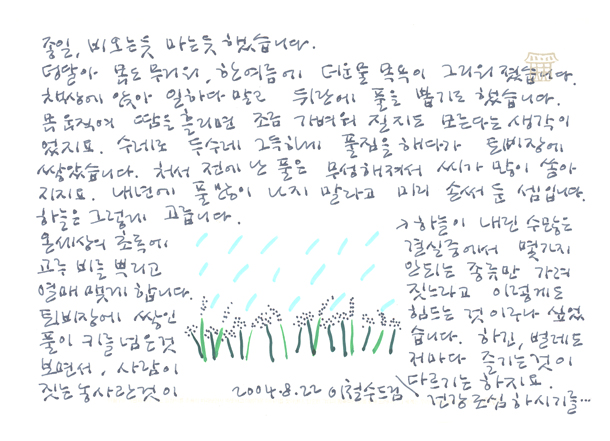 종일, 비오는듯 마는듯 했습니다.
덩달아 몸도 무거워, 한여름에 더운물 목욕이 그리워졌습니다.
책상에 앉아 일하다 말고 뒤란에 풀을 뽑기로 했습니다.
몸 움직여 땀을 흘리면 조금 가벼워 질지도 모른다는 생각이
었지요. 수레로 두수레 그득하게 풀짐을 해다가 퇴비장에
쌓았습니다. 처서 전에 난 풀은 무성해져서 씨가 많이 쏟아
지지요. 내년에 풀 많이 나지 말라고 미리 손써 둔 셈입니다.
하늘은 그렇게 고릅니다.
온세상의 초록에
고루 비를 뿌리고
열매 맺게 합니다.
퇴비장에 쌓인
풀이 키를 넘은것
보면서, 사람이
짓는 농사란것이
→ 하늘이 내린 수많은
결실중에서 몇가지
안되는 종류만 가려
짓느라고 이렇게도
힘드는 것이구나 싶었
습니다. 하긴, 벌레도
저마다 즐기는것이
다르기는 하지요.
건강 조심하시기를…
2004.8.22 이철수드림